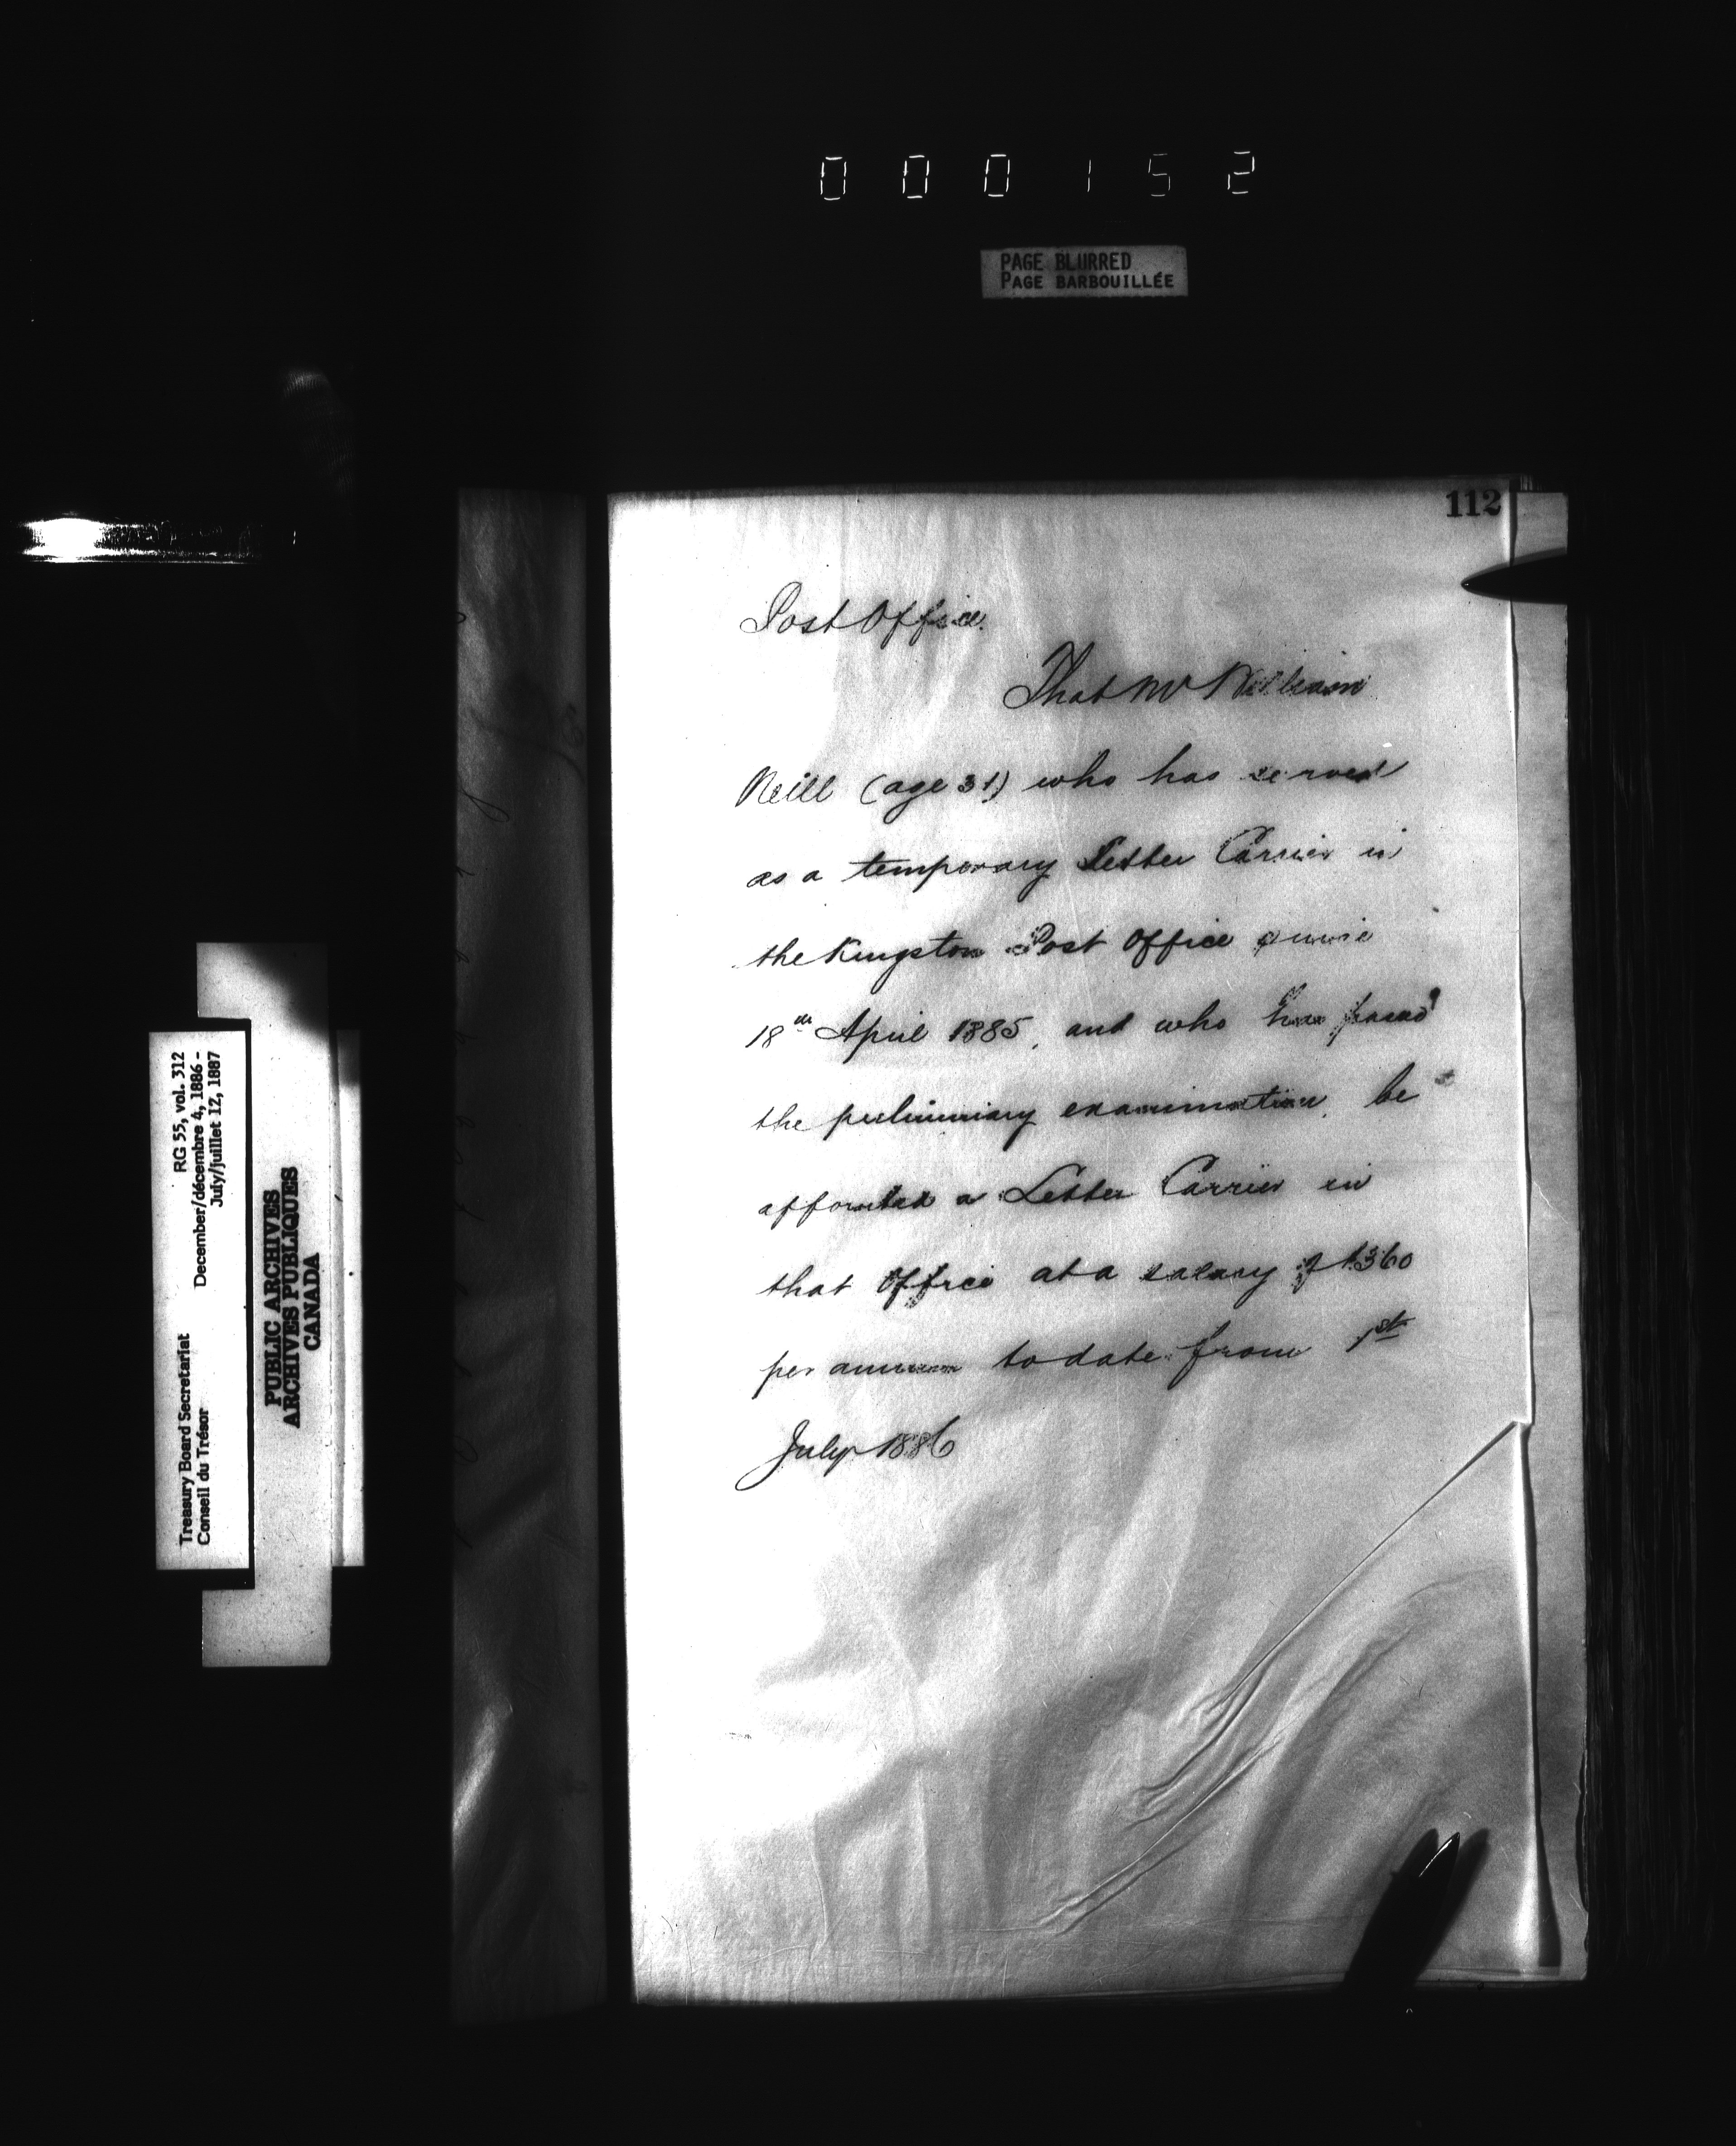 000152
PAGE BLURRED
PAGE BARBOUILLÉE
112
Post Office.
That Mr William
Neill (age 31) who has served
as a temporary Letter Carrier in
the Kingston Post Office since
18th April 1885, and who has passed
the preliminary examination, be
appointed a Letter Carrier in
that Office at a salary of $360
per annum to date from 1st
July 1886
Treasury Board Secretariat
Conseil du Trésor
RG 55, vol. 312
December/décembre 4, 1886 -
July/juillet 12, 1887
PUBLIC ARCHIVES
ARCHIVES PUBLIQUES
CANADA